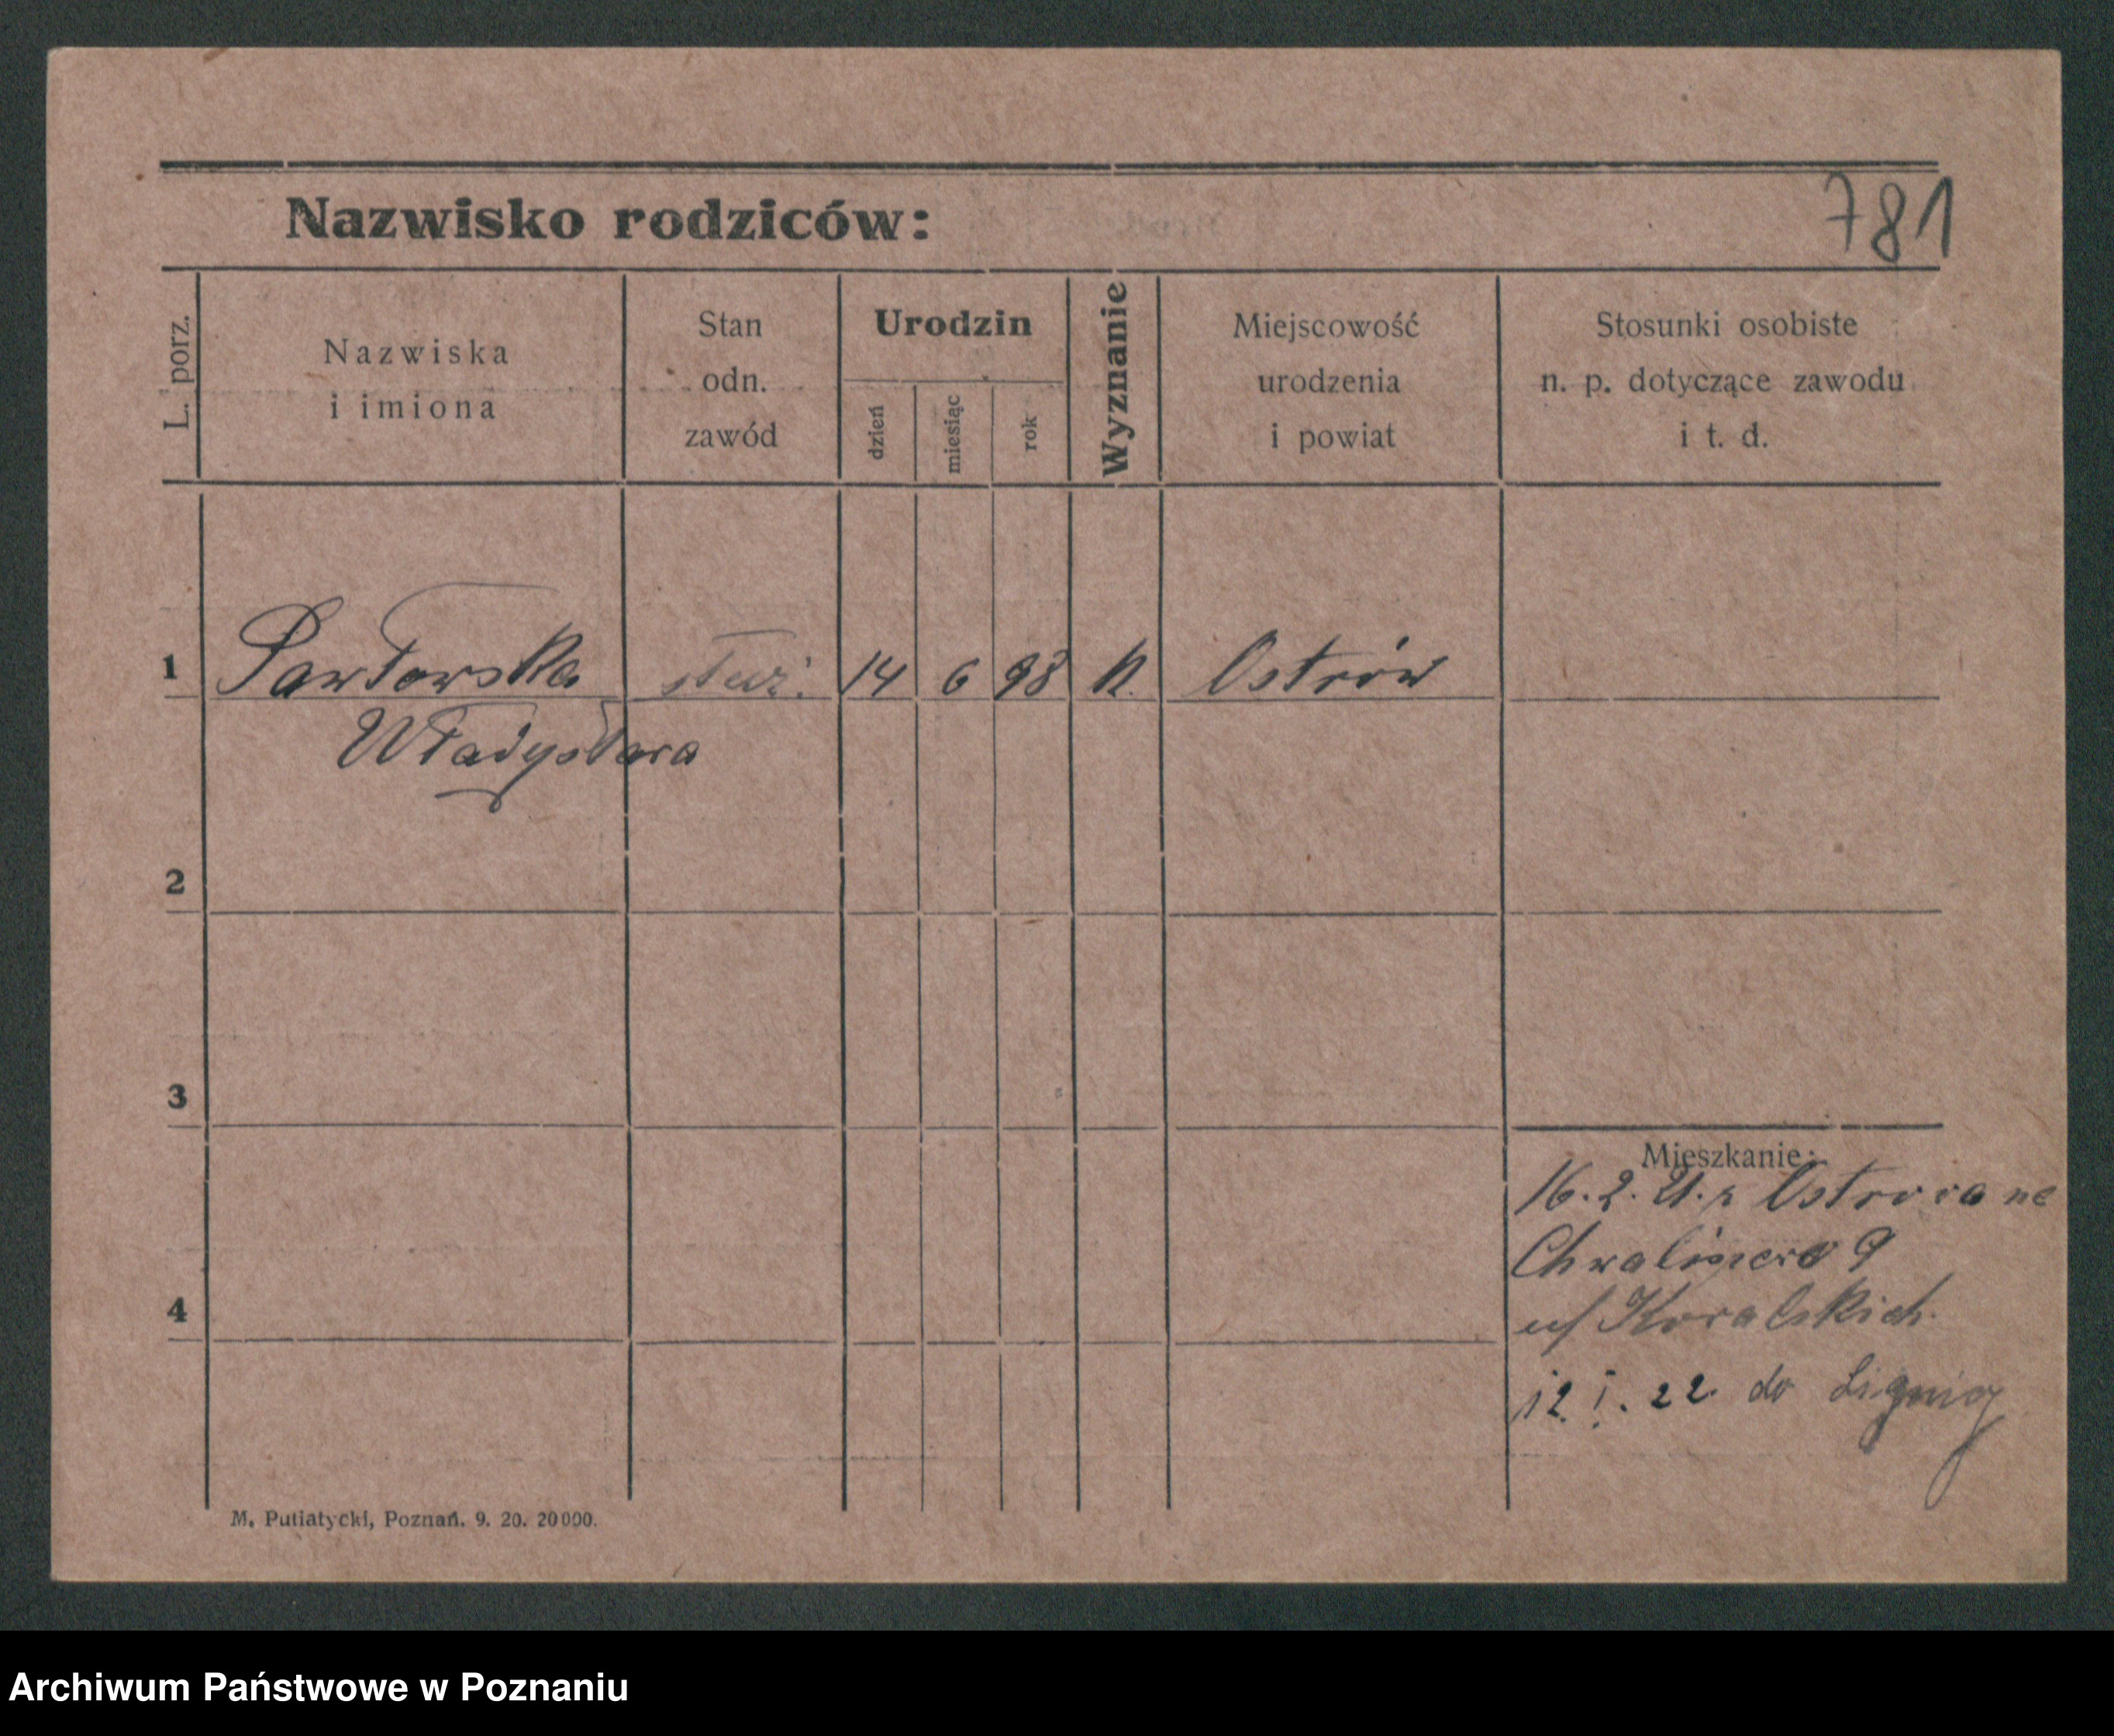 781
Nazwisko rodziców:
L. porz.
Nazwiska
i imiona
Stan
odn.
zawód
Urodzin
dzień
miesiąc
rok
Wyznanie
Miejscowość
urodzenia
i powiat
Stosunki osobiste
n. p. dotyczące zawodu
i t. d.
1 Pawłowska służ. 14 6 98 K. Ostrów
Władysława
2
3
Mieszkanie:
16. 2. 21. z Ostrowa na
Chwaliszewo 9
u/ Kowalskich.
4
12. I. 22. do Lignicy
M. Putiatycki, Poznań. 9. 20. 20000.
Archiwum Państwowe w Poznaniu